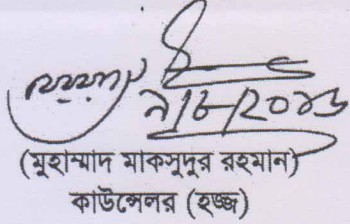 ৯/৮/২০১৬
(মুহাম্মাদ মাকসুদুর রহমান)
কাউন্সেলর (হজ্জ)